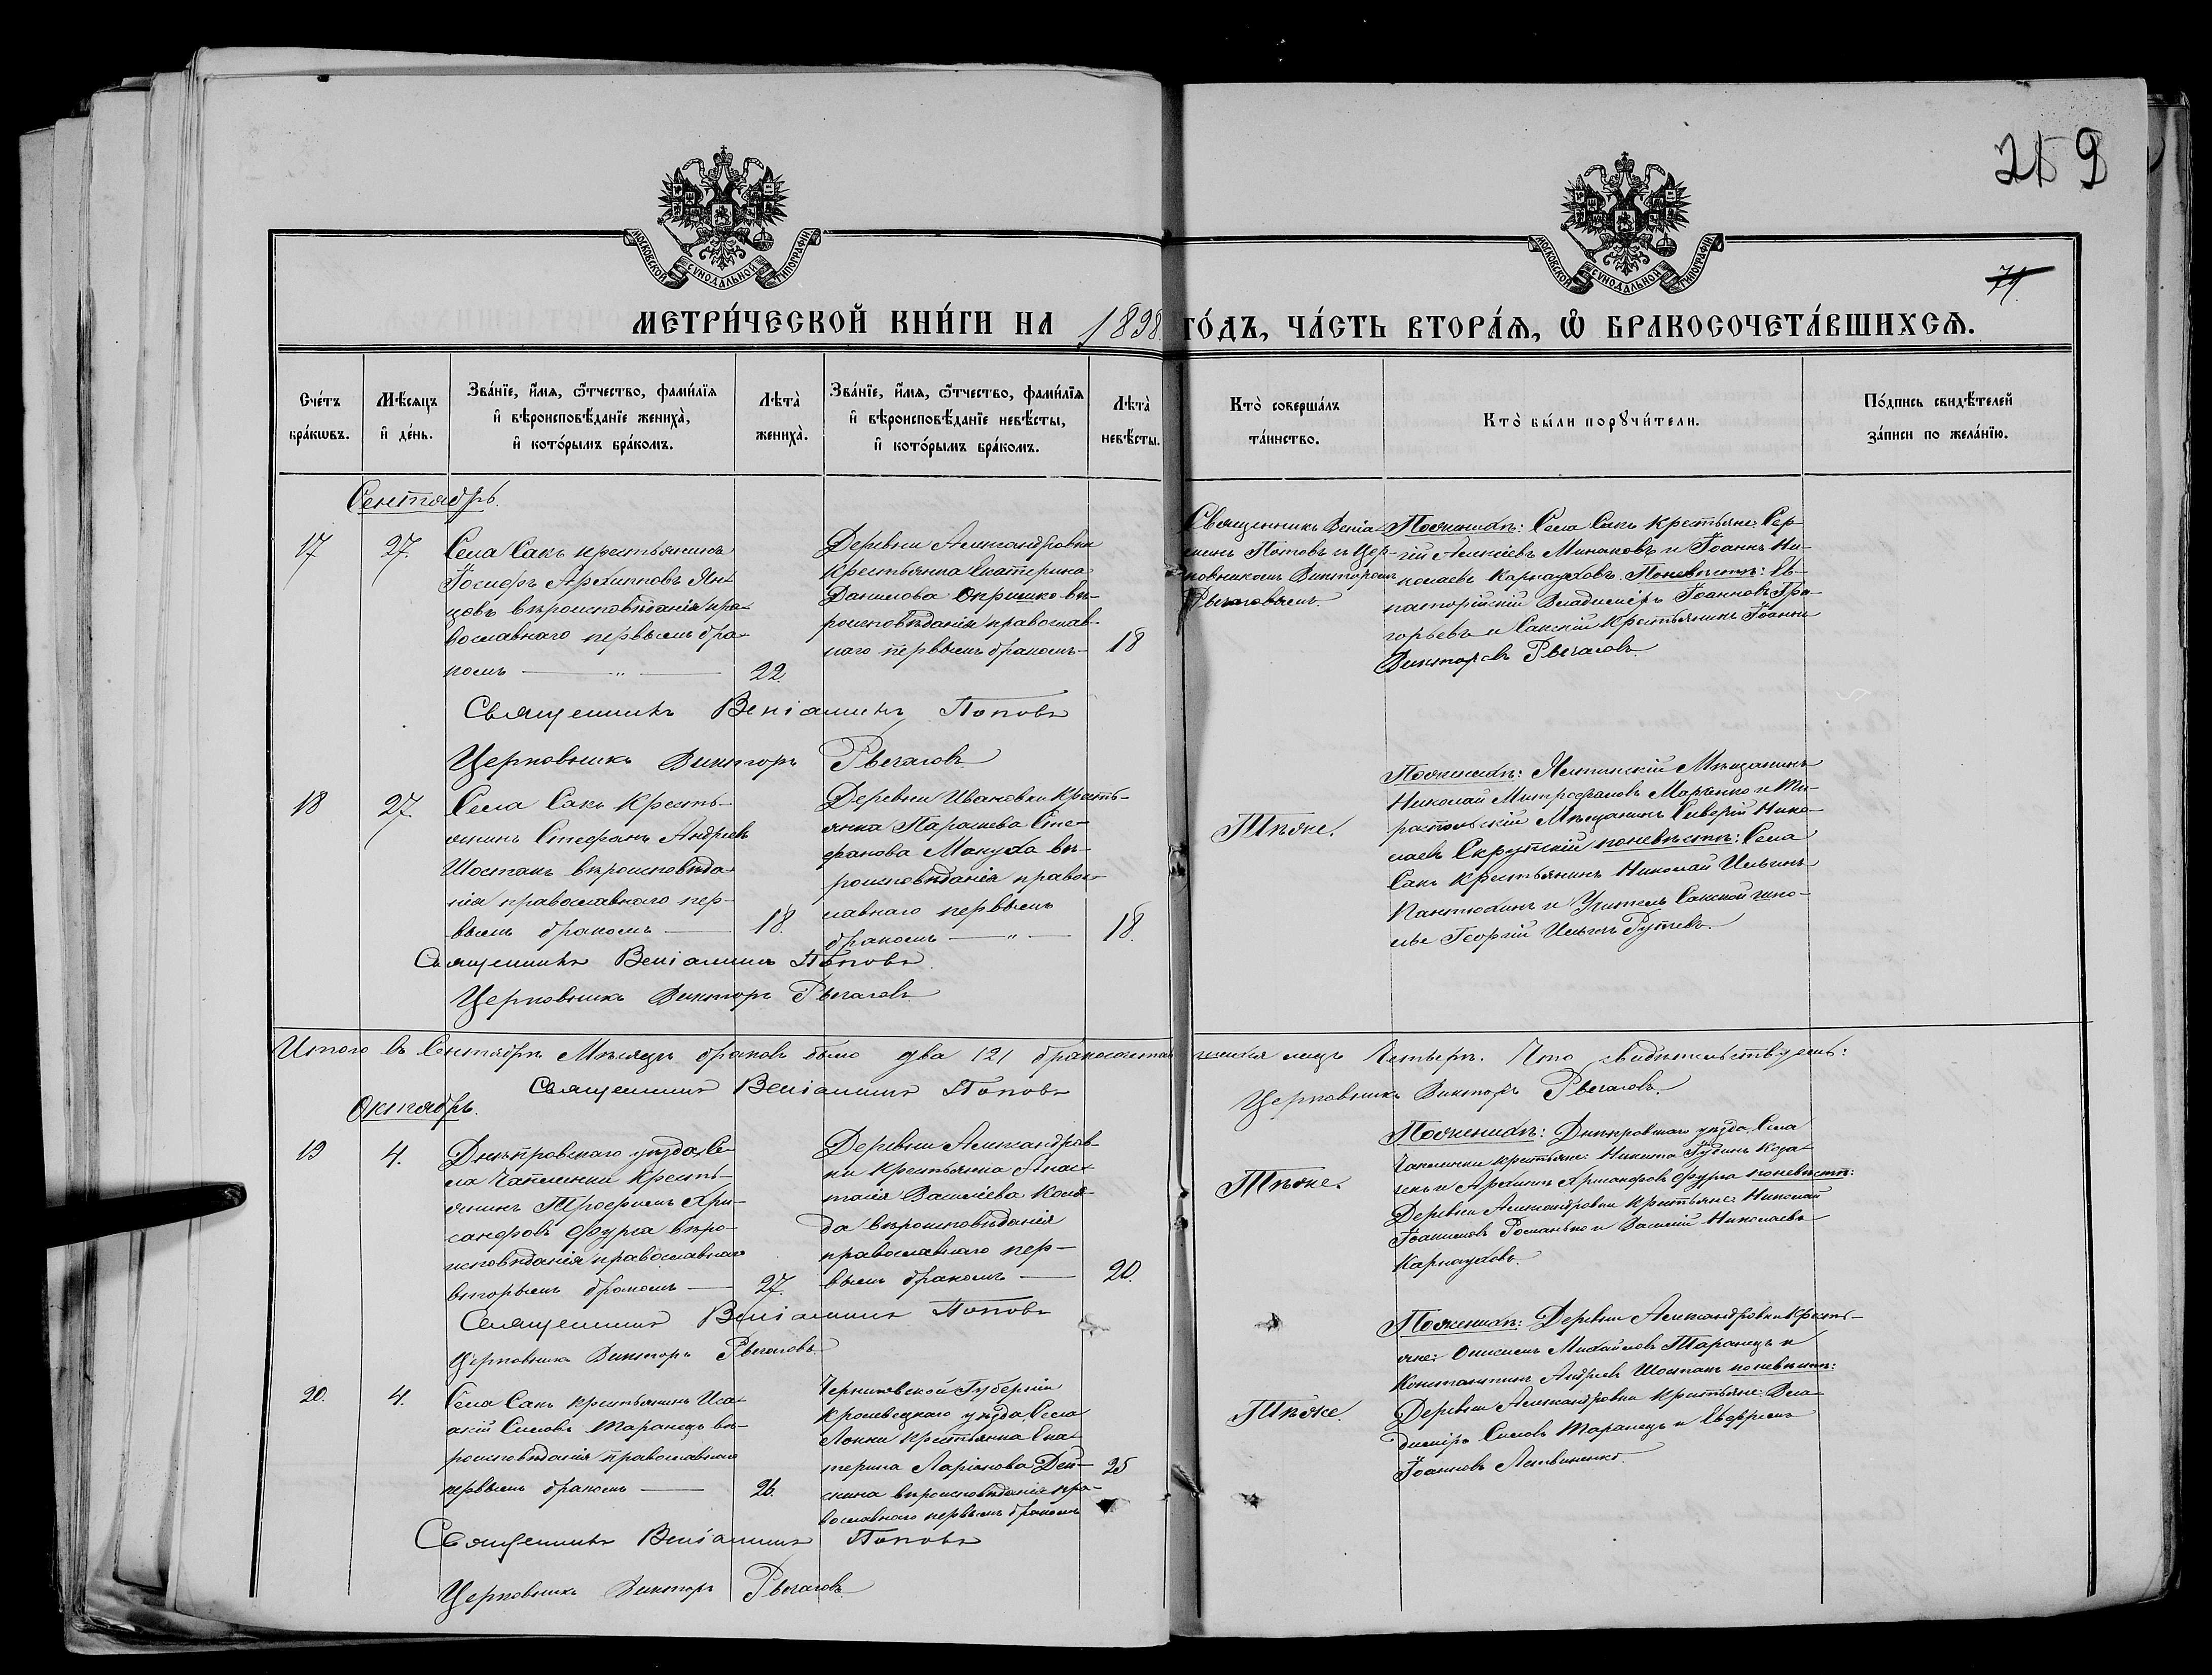 259
МОСКОВСКОЙ СѴНОДАЛЬНОЙ ТИПОГРАФІИ
МОСКОВСКОЙ СѴНОДАЛЬНОЙ ТИПОГРАФІИ
МЕТРИ́ЧЕСКОЙ КНИ́ГИ НА 1898 ГО́ДЪ, ЧА́СТЬ ВТОРА́Ѧ, Ѽ БРАКОСОЧЕТА́ВШИХСѦ.
Сче́тъ бра́кωвъ.
Мѣ́сѧцъ и҆ де́нь.
Зва́нїе, и҆́мѧ, ѻ҆́тчество, фами́лїѧ
и҆ вѣроисповѣ́данїе жениха̀,
и҆ кото́рымъ бра́комъ.
Лѣта̀ жениха̀.
Зва́нїе, и҆́мѧ, ѻ҆́тчество, фами́лїѧ
и҆ вѣроисповѣ́данїе невѣ́сты,
и҆ кото́рымъ бра́комъ.
Лѣта̀ невѣ́сты.
Кто̀ соверша́лъ
та́инство.
Кто̀ бы́ли порꙋчи́тели.
По́дпись свидѣ́телей
за́писи по жела́нїю.
Сентябрь.
17
27.
Села Сакъ крестьянинъ
Іосифъ Архипповъ
цовъ вѣроисповѣданія пра-
вославнаго первымъ бра-
комъ — „ —
22.
Деревни Александровки
крестьянка Екатерина
Данилова Окришко вѣ-
роисповѣданія православ-
наго первымъ бракомъ —
18
Священникъ Веніа-
минъ Поповъ съ Цер-
ковникомъ Викторомъ
Рычаговымъ.
По женихѣ: Села Сакъ крестьяне: Сер-
гій Алексіевъ Минаковъ и Іоаннъ Ни-
колаевъ Карнауховъ. По невѣстѣ: Ев-
паторійскій Владиміръ Іоанновъ Гри-
горьевъ и Сакскій крестьянинъ Іоаннъ
Викторовъ Рычаговъ.
Священникъ Веніаминъ Поповъ
Церковникъ Викторъ Рычаговъ
18
27.
Села Сакъ кресть-
янинъ Стефанъ Андреевъ
Шостакъ вѣроисповѣда-
нія православнаго пер-
вымъ бракомъ —
18.
Деревни Ивановки кресть-
янка Параскева Сте-
фанова Макуха вѣ-
роисповѣданія право-
славнаго первымъ
бракомъ — „ —
18.
Тѣже.
По женихѣ: Ялтинскій Мѣщанинъ
Николай Митрофановъ Марченко и Ти-
распольскій Мѣщанинъ Нико-
лаевъ по невѣстѣ: Села
Сакъ крестьянинъ Николай Ильинъ
Пантюхинъ и Учитель Сакской шко-
лы Георгій Ильинъ
Священникъ Веніаминъ Поповъ.
Церковникъ Викторъ Рычаговъ
Итого въ Сентябрѣ Мѣсяцѣ браковъ было два /2/ бракосочетавшихся лицъ четыре. Что свидѣтельствуемъ:
Священникъ Веніаминъ Поповъ
Церковникъ Викторъ Рычаговъ.
Октябрь.
19
4.
Днѣпровскаго уѣзда Се-
ла Чаплинки кресть-
янинъ Трофимъ Хри-
санфовъ Фурса вѣро-
исповѣданія православнаго
вторымъ бракомъ —
27.
Деревни Александров-
ки крестьянка Анас-
тасія Василіева Коля-
да вѣроисповѣданія
православнаго пер-
вымъ бракомъ —
20.
Тѣже.
По женихѣ: Днѣпровскаго уѣзда Села
Чаплинки крестьяне: Никита
и Архипъ Хрисанфовъ Фурса по невѣстѣ:
Деревни Александровки крестьяне: Николай
Іоанновъ Романько и Василій Николаевъ
Карнауховъ.
Священникъ Веніаминъ Поповъ
Церковникъ Викторъ Рычаговъ.
20.
4.
Села Сакъ крестьянинъ Иса-
акій Силовъ Таранецъ вѣ-
роисповѣданія православнаго
первымъ бракомъ —
26.
Черниговской Губерніи
Кролевецкаго уѣзда Села
крестьянка Ека-
терина Ларіонова Дей-
вѣроисповѣданія пра-
вославнаго первымъ бракомъ
25
Тѣже.
По женихѣ: Деревни Александровки кресть-
яне: Онисимъ Михайловъ Таранецъ и
Константинъ Андреевъ Шостакъ по невѣстѣ:
Деревни Александровки крестьяне: Вла-
диміръ Силовъ Таранецъ и Евфремъ
Іоанновъ Литвиненко.
Священникъ Веніаминъ Поповъ
Церковникъ Викторъ Рычаговъ